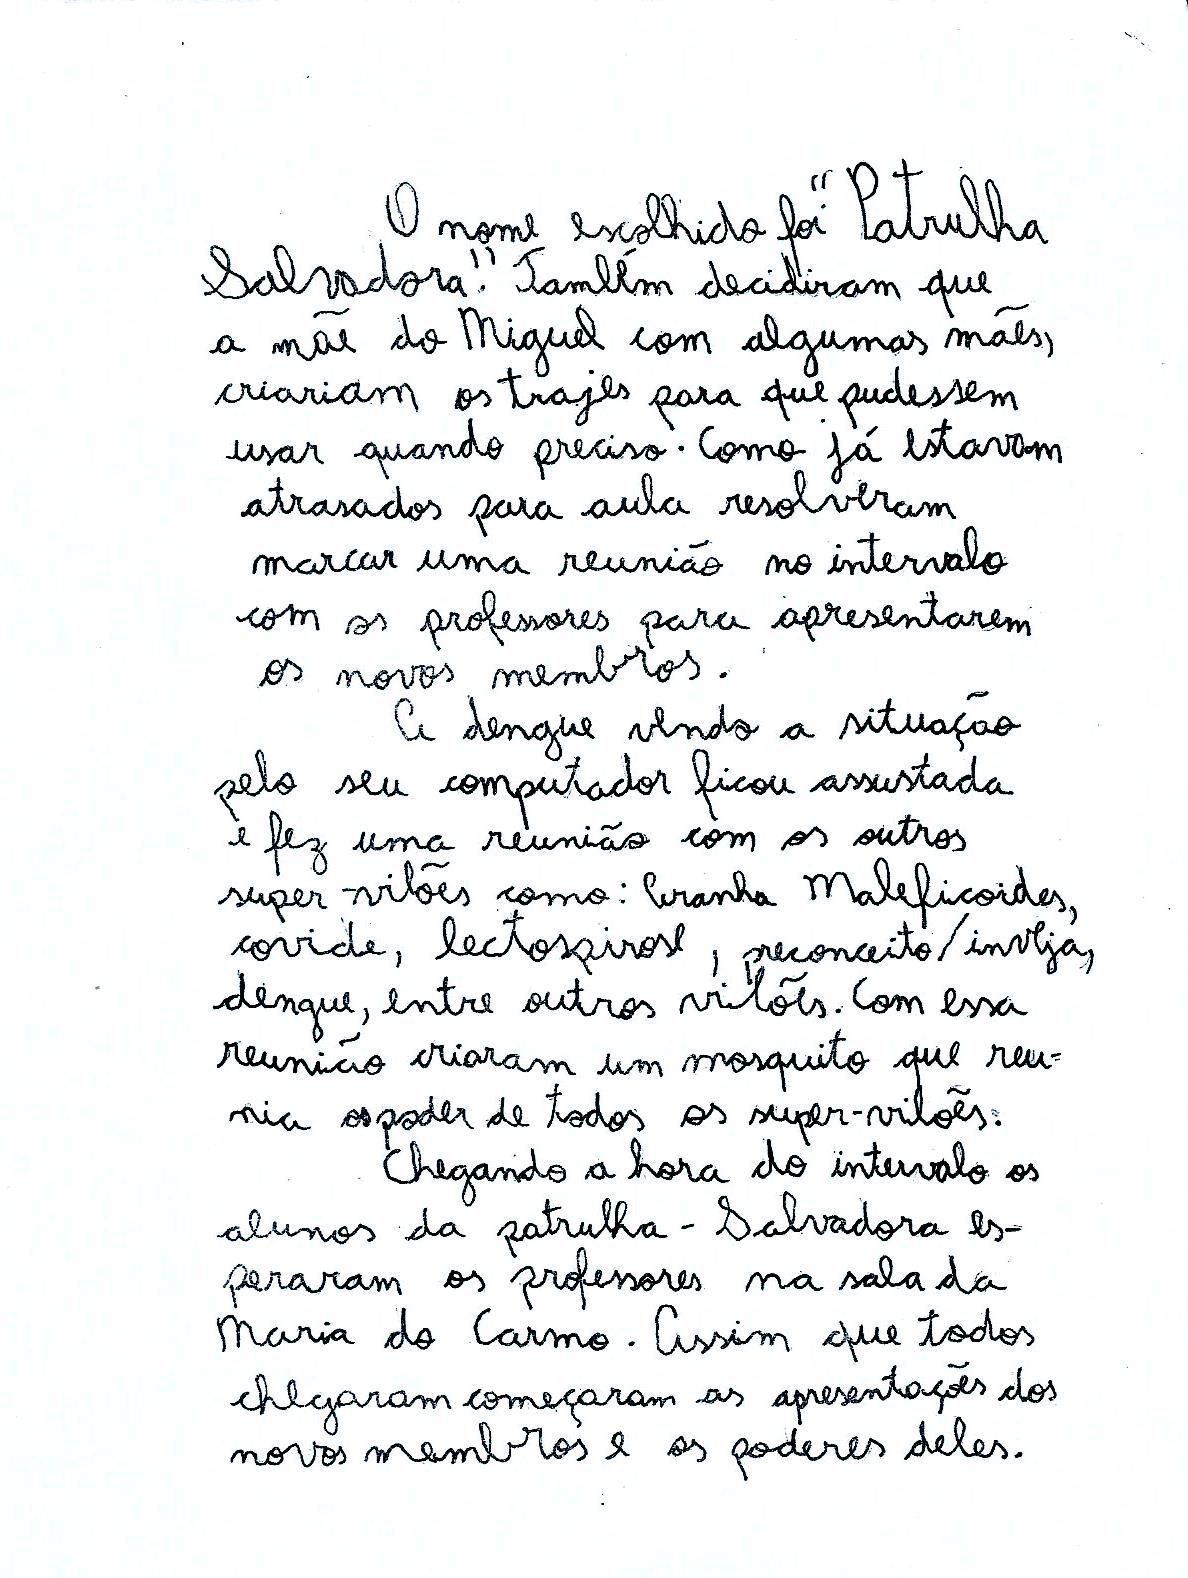 O nome escolhido foi "Patrulha
Salvadora". Também decidiram que
a mãe do Miguel com algumas mães,
criariam os trajes para que pudessem
usar quando preciso. Como já estavam
atrasados para aula resolveram
marcar uma reunião no intervalo
com os professores para apresentarem
os novos membros.
A dengue vendo a situação
pelo seu computador ficou assustada
e fez uma reunião com os outros
super-vilões como: Aranha Maleficoides,
covide, lectospirose, preconceito/inveja,
dengue, entre outros vilões. Com essa
reunião criaram um mosquito que reu=
nia os poder de todos os super-vilões.
Chegando a hora do intervalo os
alunos da patrulha-Salvadora es-
peraram os professores na sala da
Maria do Carmo. Assim que todos
chegaram começaram as apresentações dos
novos membros e os poderes deles.